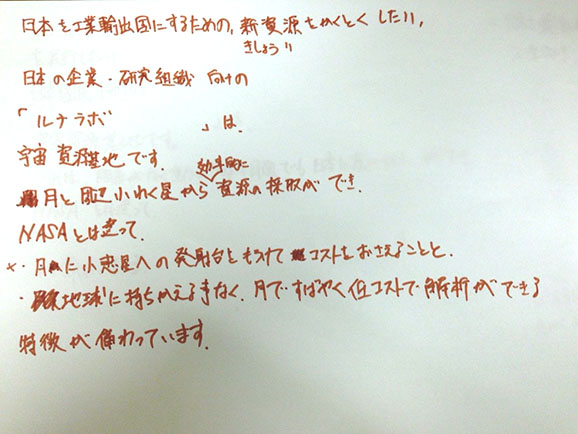 日本を工業輸出国にするための、新資源をかくとくしたい、
きしょう
日本の企業・研究組織 向けの
「ルナラボ 」は、
宇宙資源基地です。
効率的に
月と周辺小わく星から資源の採取ができ、
NASAとは違って、
×・月に小惑星への発射台をもうけてコストをおさえることと、
・地球に持ちかえるまでなく、月ですばやく低コストで解析ができる
特徴が備わっています。